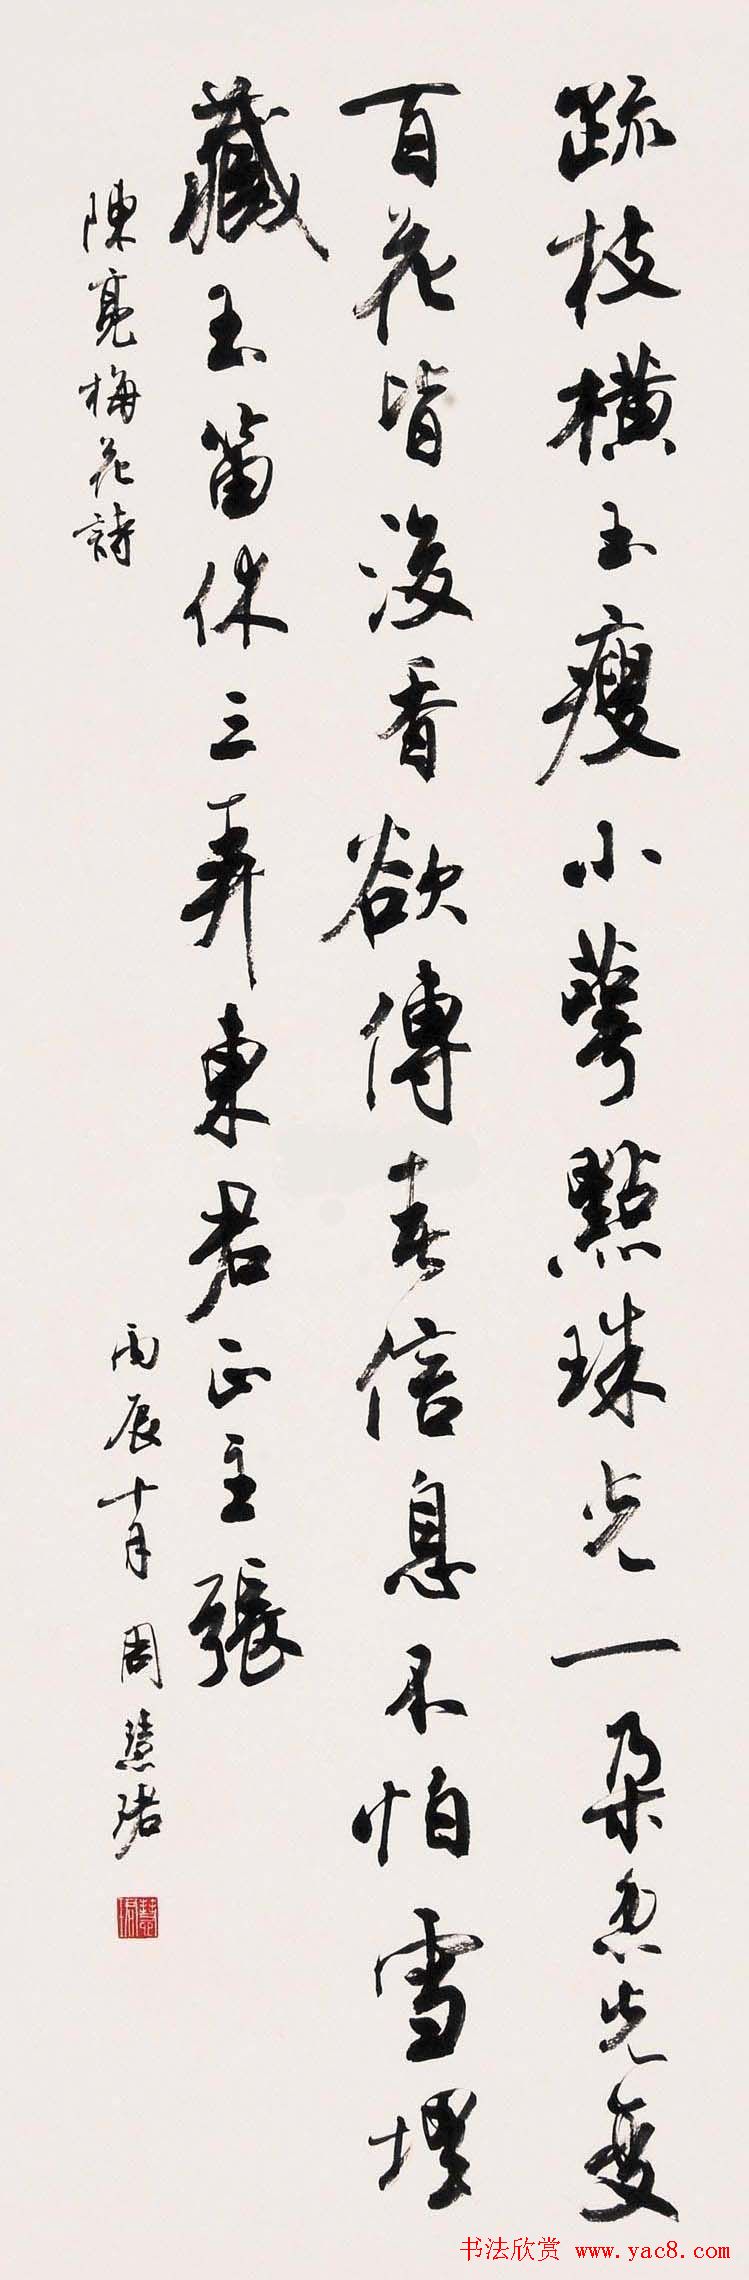 疏枝橫玉瘦小萼點珠光一朵忽先變
百花皆後香欲傳春信息不怕雪埋
藏玉笛休三弄東君正主張
陳亮梅花詩
丙辰十月周慧珺
書法欣赏 www.yac8.com